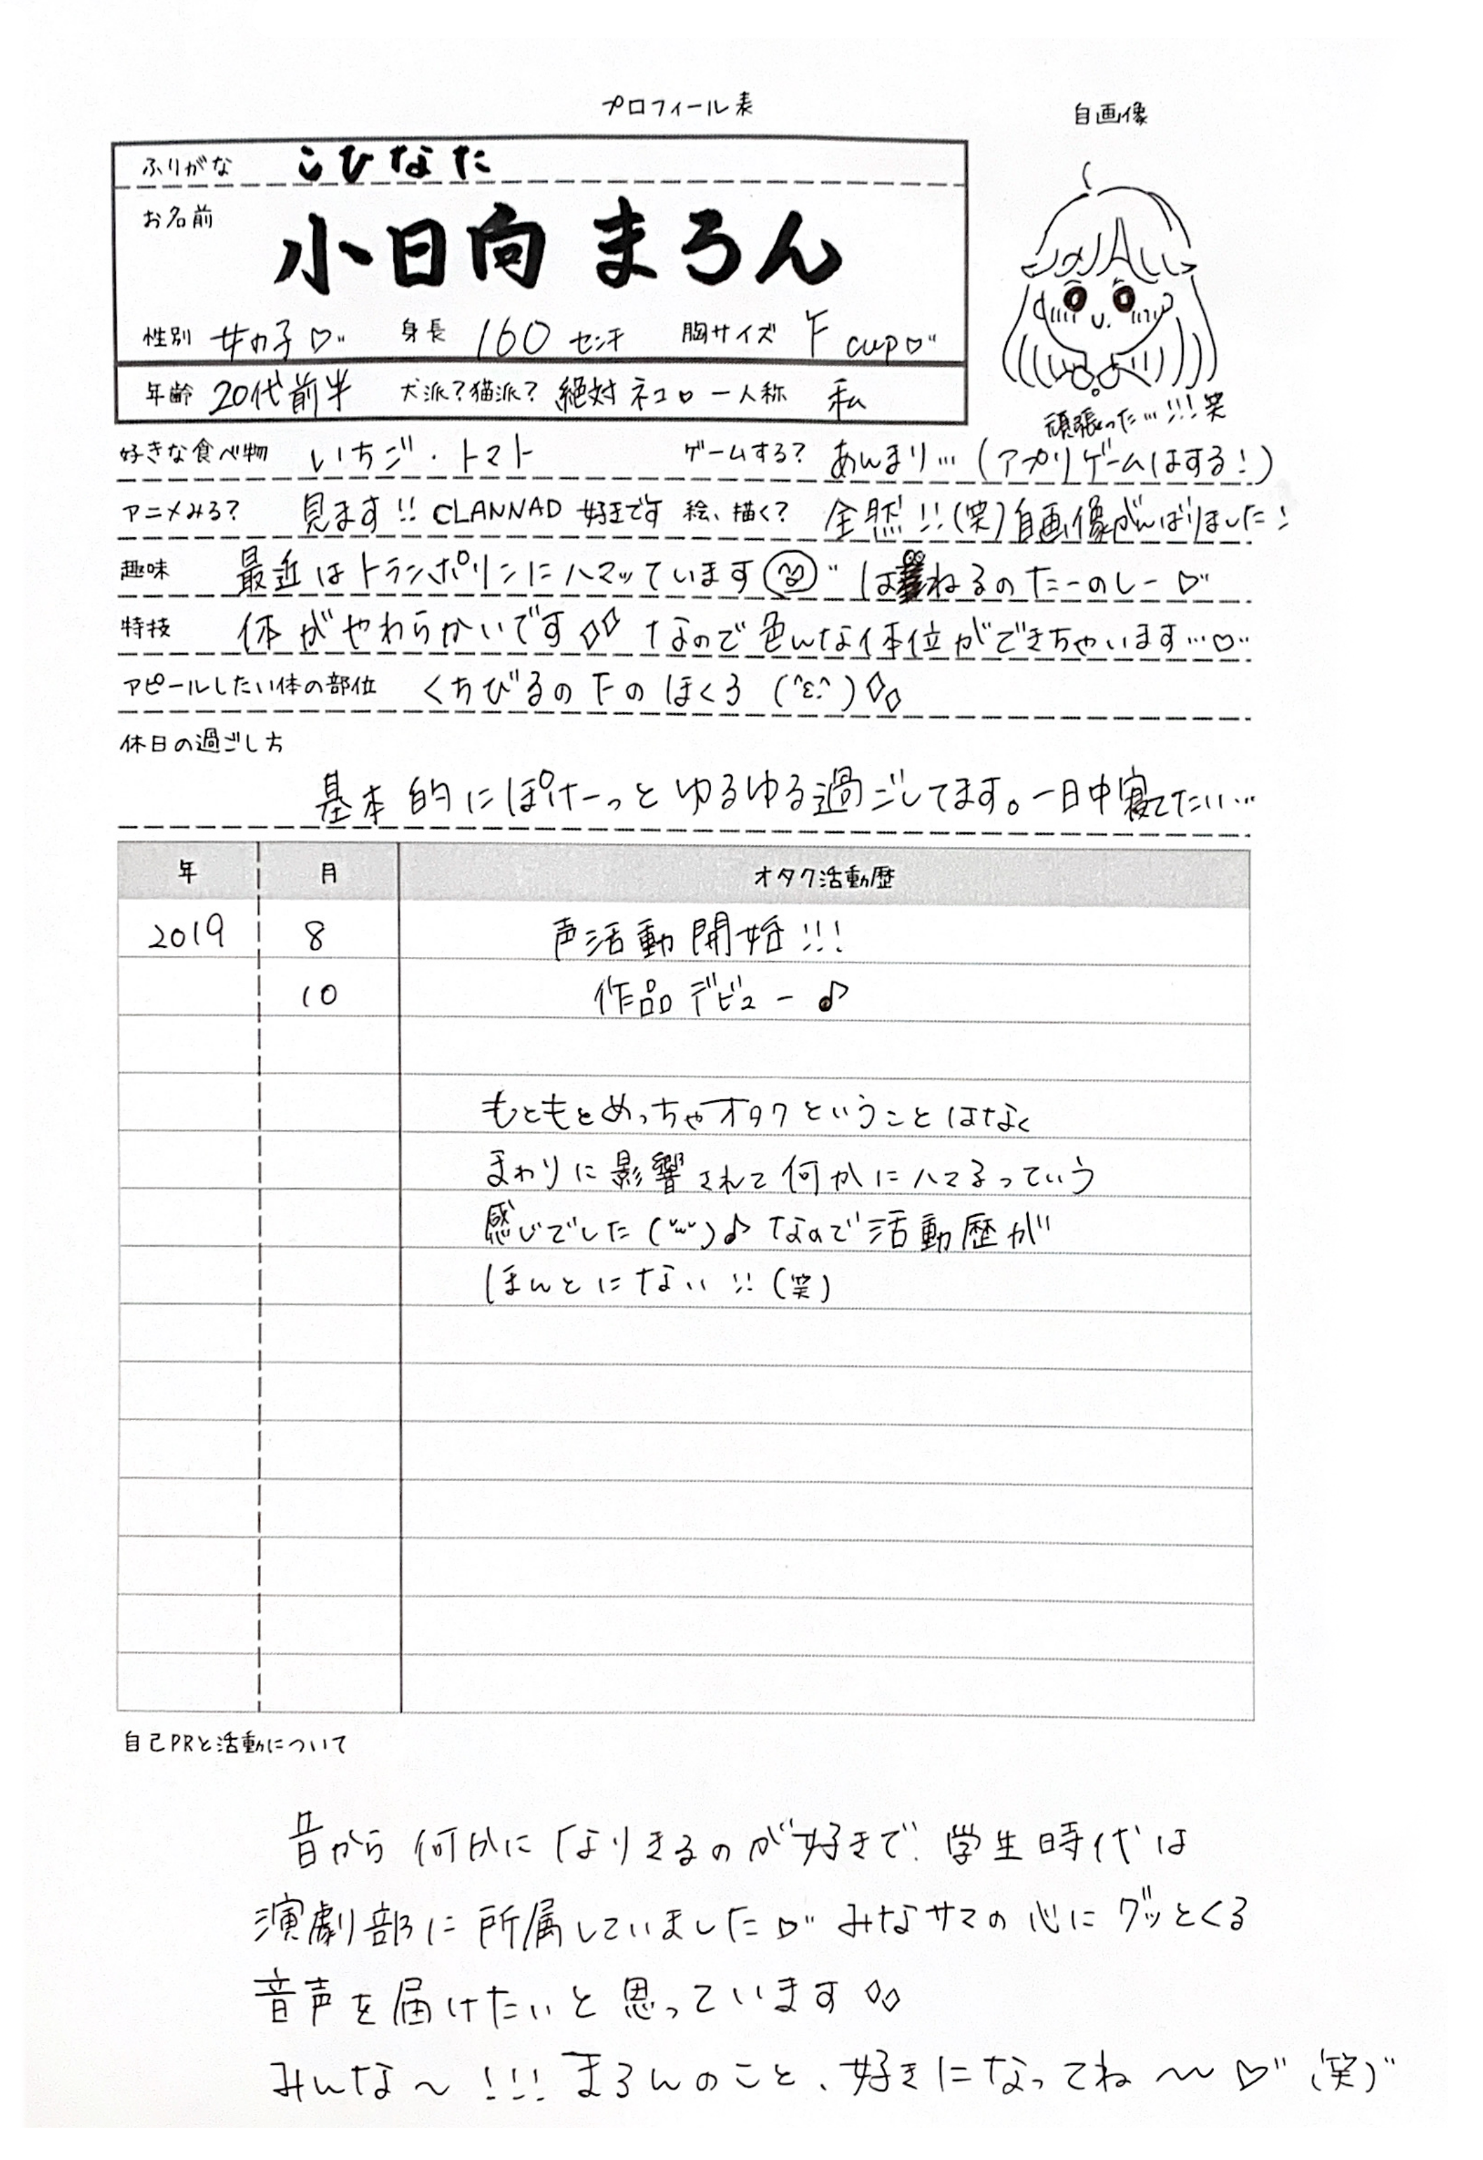 プロフィール表
自画像
ふりがな こひなた
お名前 小日向 まろん
性別 女の子♡ 身長 160 センチ 胸サイズ F cup♡
年齢 20代前半 犬派?猫派? 絶対ネコ♡ 一人称 私
頑張った…!!!笑
好きな食べ物 いちご・トマト ゲームする? あんまり…(アプリゲームはする!)
アニメみる? 見ます!! CLANNAD 好きです 絵、描く? 全然!!(笑)自画像がんばりました!
趣味 最近はトランポリンにハマっています はねるのたーのしー♡
特技 体がやわらかいです◇◇ なので色んな体位ができちゃいます…♡
アピールしたい体の部位 くちびるの下のほくろ (^ε^)◇◇
休日の過ごし方
基本的にぽけーっとゆるゆる過ごしてます。一日中寝てたい…
年 月 オタク活動歴
2019 8 声活動開始!!!
10 作品デビュー♪
もともとめっちゃオタクということはなく
まわりに影響されて何かにハマるっていう
感じでした(˘ω˘)♪ なので活動歴が
ほんとにない!!(笑)
自己PRと活動について
昔から何かになりきるのが好きで、学生時代は
演劇部に所属していました♡ みなサマの心にグッとくる
音声を届けたいと思っています◇◇
みんな〜!!!まろんのこと、好きになってね〜〜♡(笑)